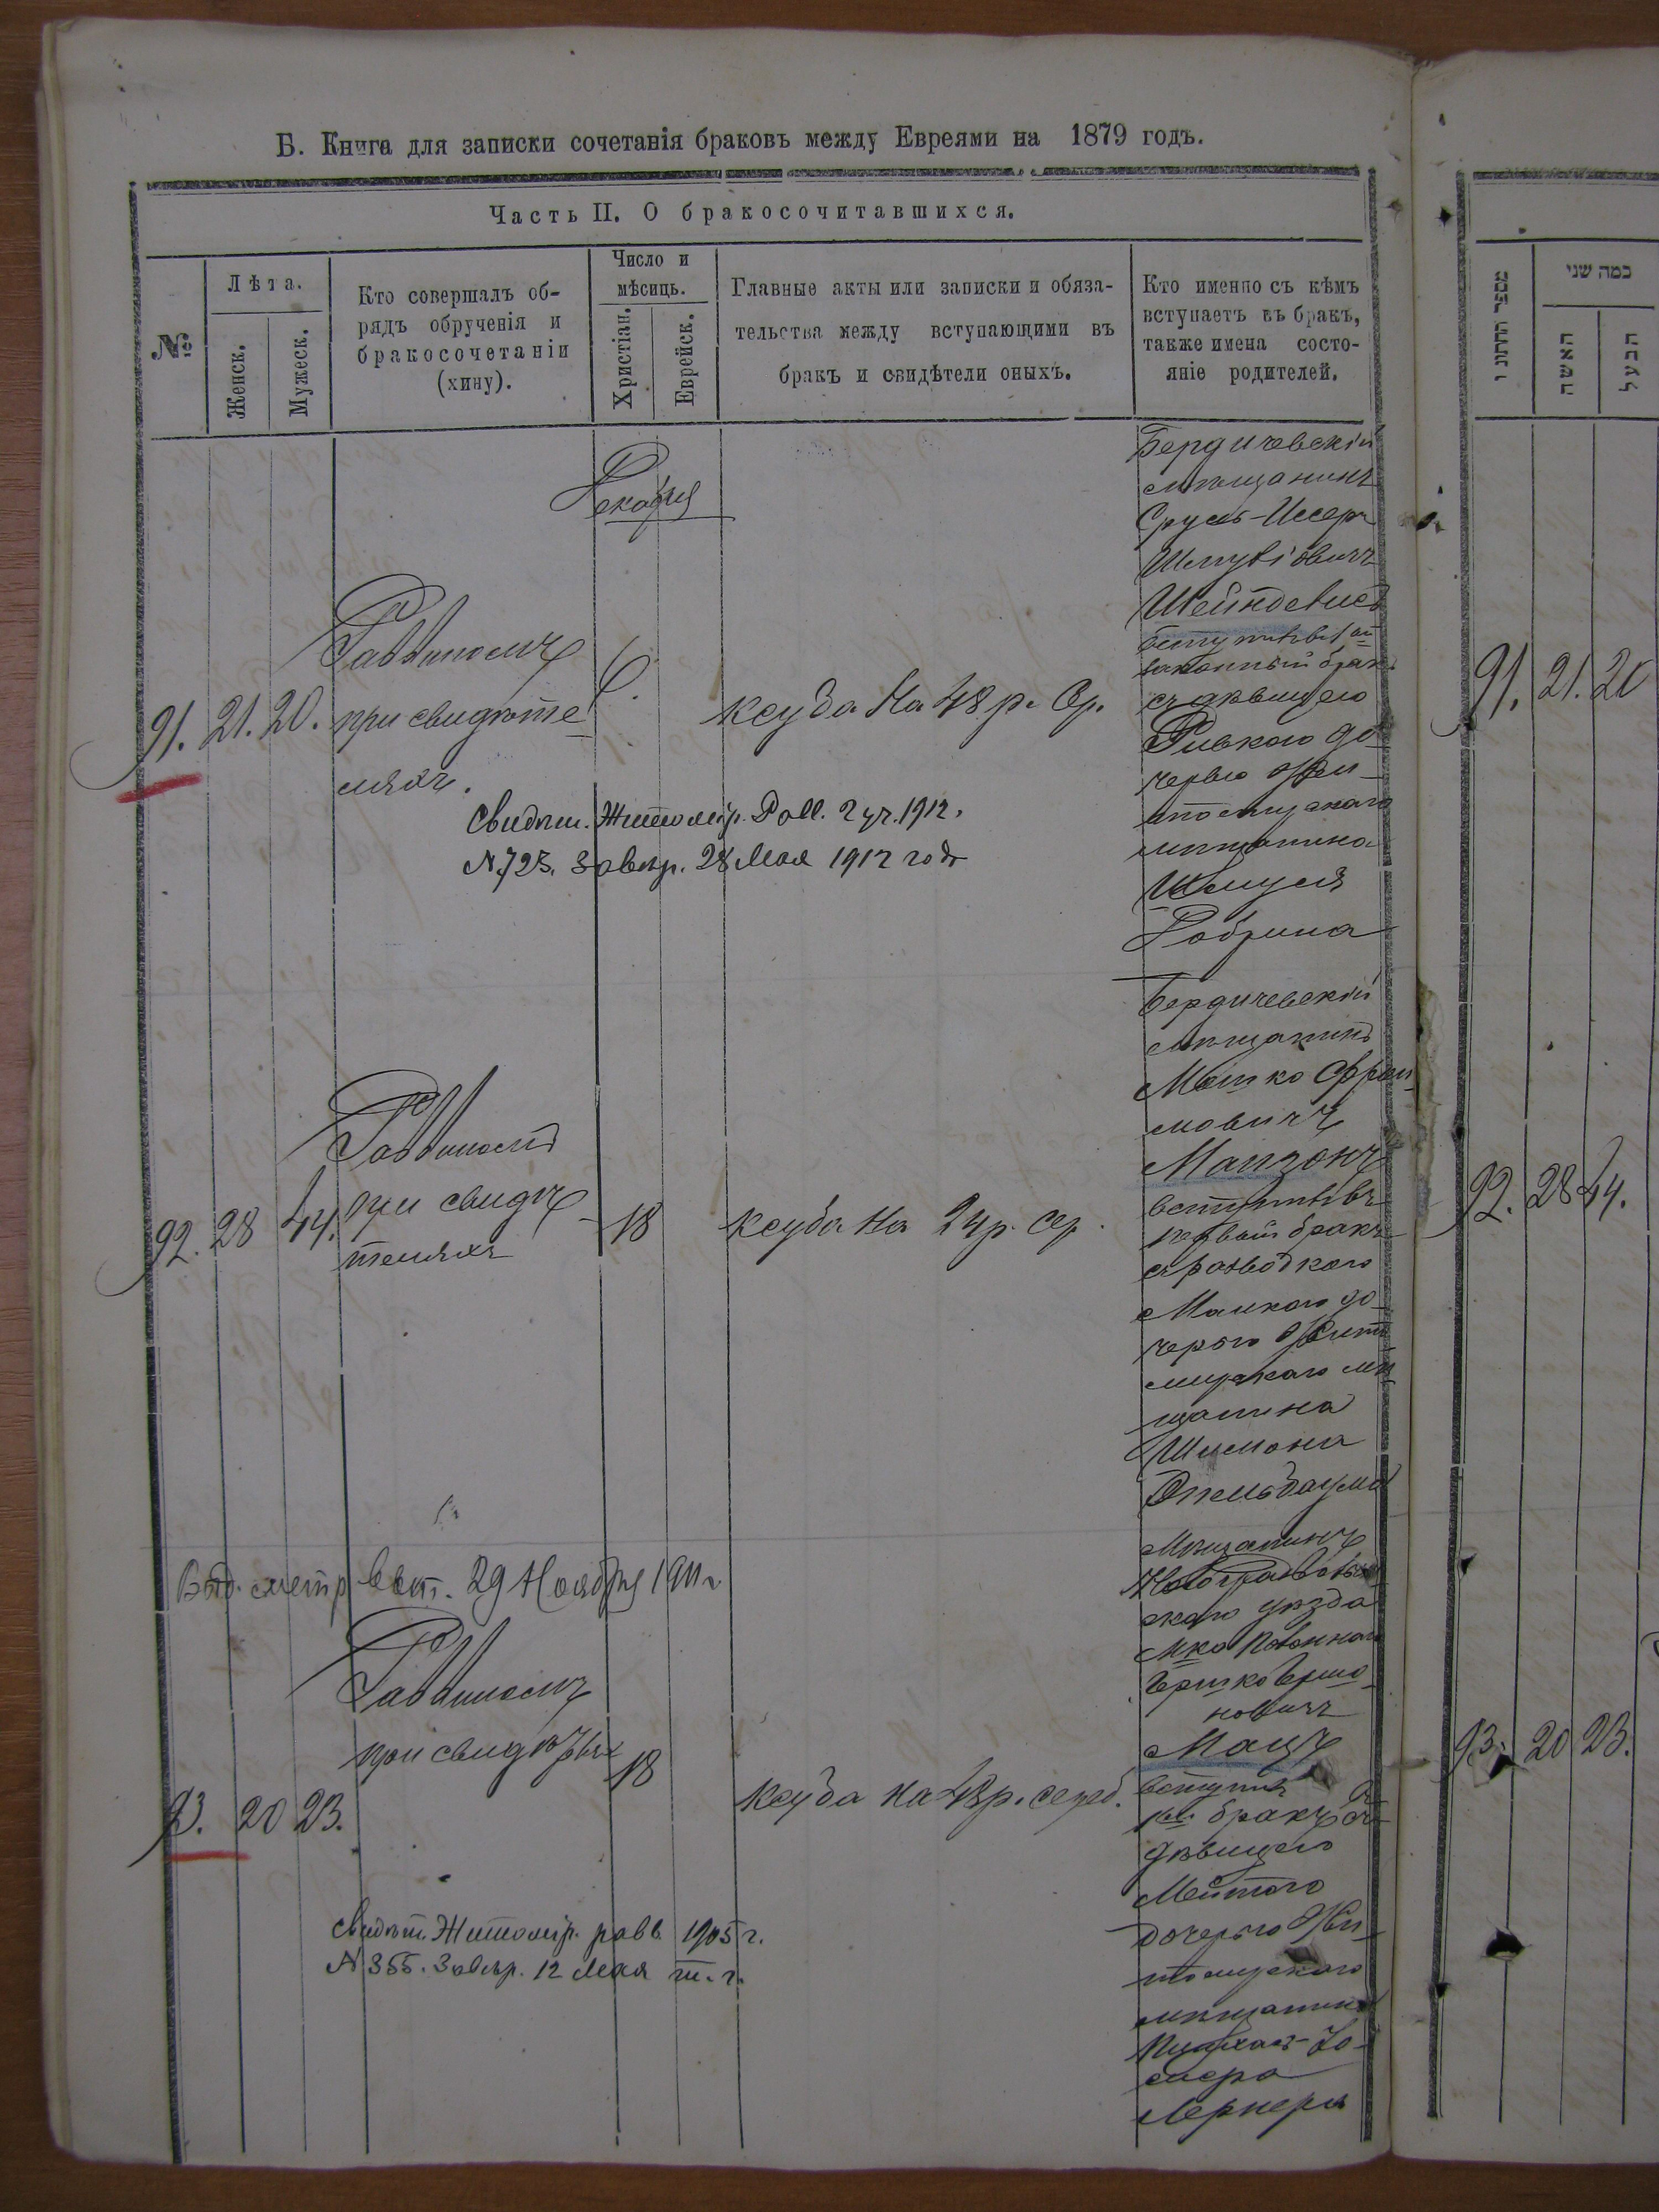 Б. Книга для записки сочетанія браковъ между Евреями на 1879 годъ.
Часть II. О бракосочитавшихся.
№
Лѣта.
Женск.
Мужеск.
Кто совершалъ об-
рядъ обрученія и
бракосочетаніи
(хину).
Число и
мѣсяцъ.
Христіан.
Еврейск.
Главные акты или записки и обяза-
тельства между вступающими въ
бракъ и свидѣтели оныхъ.
Кто именно съ кѣмъ
вступаетъ въ бракъ,
также имена состо-
яніе родителей.
Декабря
91. 21. 20.
Раввиномъ
при свидѣте-
ляхъ.
6.
ксуба на 48 р. Ср.
Бердичевскій
мѣщанинъ
Сруль-Иссеръ
вступилъ въ 1ый
законный бракъ
съ дѣвицею
Ривкою до-
черью Жи-
томирскаго
мѣщанина
Шмуля
Свидѣт. Житомір. Рав. 2 уч. 1912.
N. 723. Завѣр. 28 Мая 1912 года
92. 28 44.
Раввиномъ
при свидѣ-
теляхъ
18
ксуба на 24 р. сер.
Бердичевскій
мѣщанинъ
Мошко Фрои-
мовичъ
вступилъ въ
первый бракъ
съ разводкою
Малкою до-
черью Жито-
мирскаго мѣ-
щанина
Шимона
Выд. метр. вып. 29 Ноября 1911 г.
93. 20 23.
Раввиномъ
при свидѣт
18
ксуба на 48 р. сереб.
Мѣщанинъ
Новоградволын-
скаго уѣзда
Бершко Бершо-
новичъ
Мацъ
вступилъ въ
1ый бракъ съ
дѣвицею
дочерью Жи-
томирскаго
мѣщанина
Лернера
Свидѣт. Житомір. равв. 1905 г.
N 355. Завѣр. 12 Мая т. г.
כמה שני
האשה
הבעל
91. 21. 20
92. 28 44.
93. 20 23.